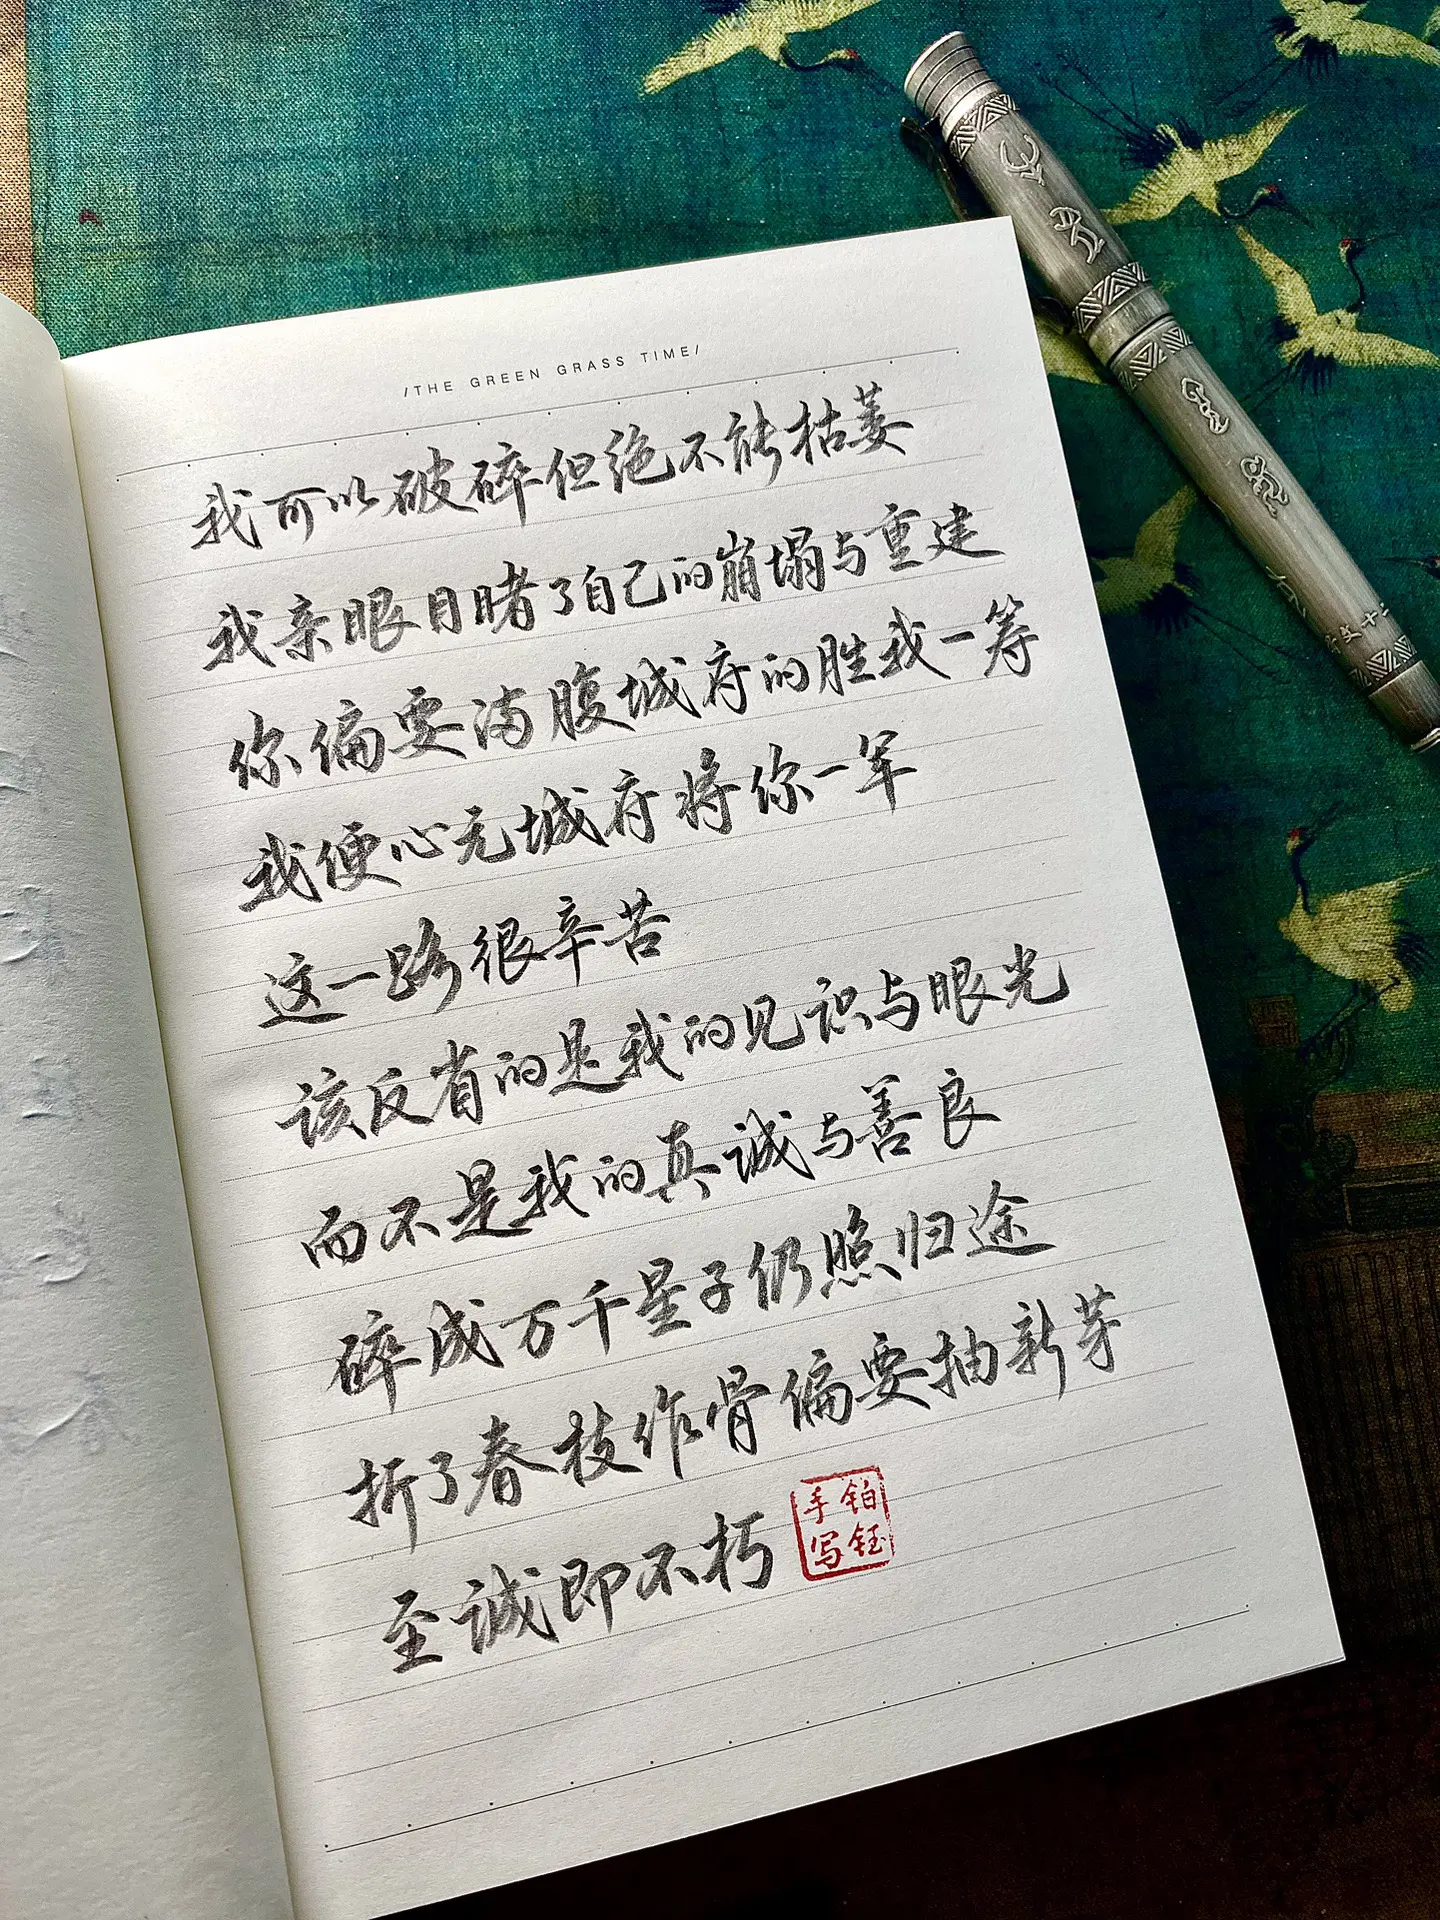 /THE GREEN GRASS TIME/
我可以破碎但绝不能枯萎
我亲眼目睹了自己的崩塌与重建
你偏要满腹城府的胜我一筹
我便心无城府将你一军
这一路很辛苦
该反省的是我的见识与眼光
而不是我的真诚与善良
碎成万千星子仍照归途
折了春枝作骨偏要抽新芽
至诚即不朽
铂钰
手写